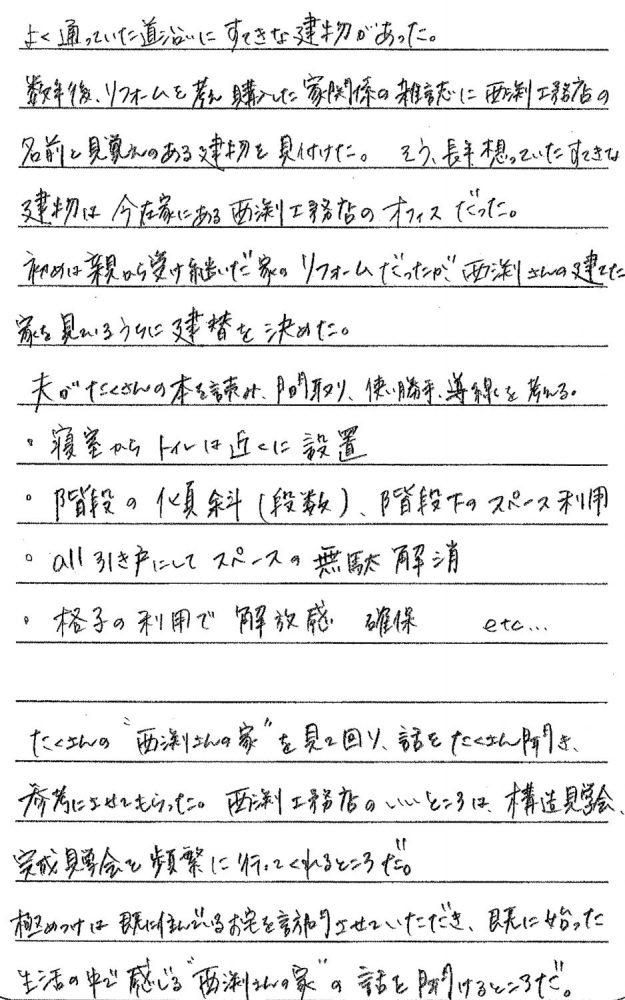 よく通っていた道沿いにすてきな建物があった。
数年後、リフォームを考え購入した家関係の雑誌に西渕工務店の
名前と見覚えのある建物を見付けた。 そう、長年想っていたすてきな
建物は今在家にある西渕工務店のオフィスだった。
初めは親から受け継いだ家のリフォームだったが西渕さんの建てた
家を見ているうちに建替を決めた。
夫がたくさんの本を読み、間取り、使い勝手、導線を考える。
・ 寝室からトイレは近くに設置
・ 階段の傾斜(段数)、階段下のスペース利用
・ all引き戸にしてスペースの無駄解消
・ 格子の利用で 解放感 確保 etc...
たくさんの“西渕さんの家”を見て回り、話をたくさん聞き、
参考にさせてもらった。西渕工務店のいいところは、構造見学会、
完成見学会を頻繁に行ってくれるところだ。
極めつけは既に住んでいるお宅を訪問させていただき、既に始った
生活の中で感じる“西渕さんの家”の話を聞けるところだ。